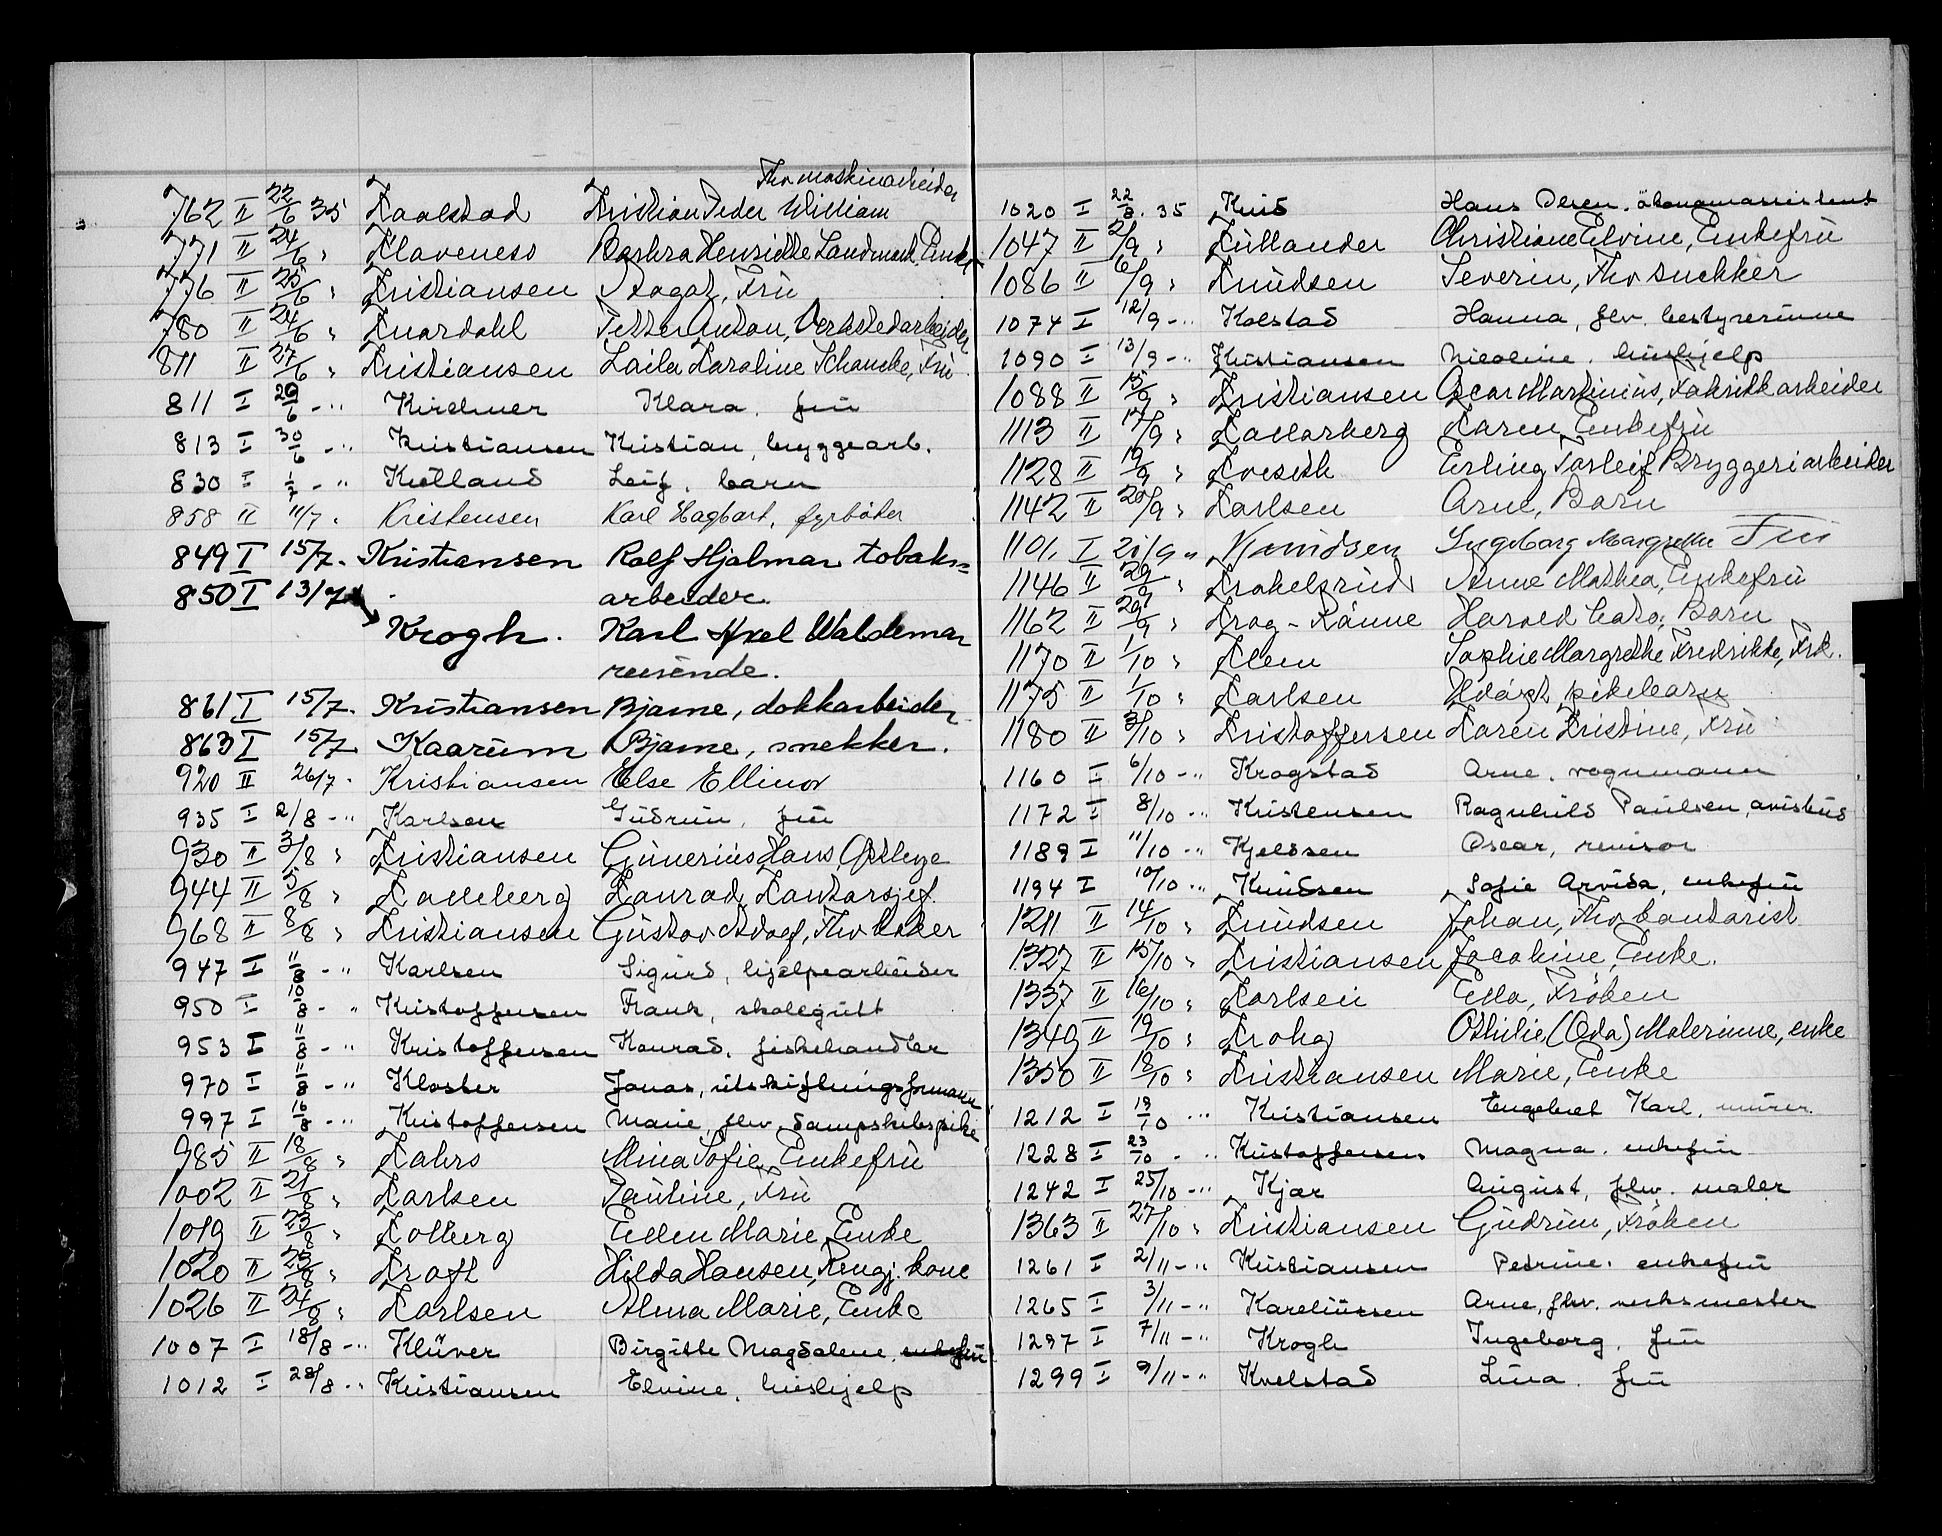 Fhv maskinarbeider
762 II 22/6 35 Kaalstad Kristian Peder William
771 II 24/6 " Klaveness Barbra Henriette Landmark, Enke
776 II 25/6 " Kristiansen Aagot, Frü
780 II 24/6 " Knardahl Petter Anton, Verkstedarbeider
811 II 27/6 " Kristiansen Laila Karoline Schancke, Frü
811 I 29/6 - " Kirchner Klara. frü
813 I 30/6 - " Kristiansen Kristian, bryggearb.
830 I 1/7 - " Külland Leif. barn
858 II 11/7 " Kristensen Karl Hagbart, fyrbøter
849 I 15/7. Kristiansen Rolf Hjalmar tobaks=
850 I 13/7 arbeider.
Krogh. Karl Axel Waldemar
reisende.
861 I 15/7. Kristiansen Bjarne, dokkarbeider
863 I 15/7. Kaarum Bjarne, snekker.
920 II 26/7. Kristiansen Else Ellinor
935 I 2/8 - " Karlsen Güdrün, frü
930 II 3/8 " Kristiansen Günerius Hans Østbye
944 II 5/8 " Kalleberg Konrad, Kontorsjef.
968 II 8/8 " Kristiansen Güstav Adolf, Fhv baker
947 I 11/8 - " Karlsen Sigürd, hjelpearbeider
950 I 10/8 - " Kristoffersen Frank, skolegütt
953 I 11/8 - " Kristoffersen Konrad, fiskehandler
970 I 11/8 - " Kloster Jonas, ütskiftningsformann
997 I 16/8 - " Kristoffersen Marie, fhv. dampskibspike
985 II 18/8 " Kahrs Mina Sofie, Enkefrü
1002 II 21/8 " Karlsen Paüline, Frü
1019 II 23/8 " Kolberg Ellen Marie, Enke
1020 II 23/8 " Kraft Hilda Hansen, Rengj. kone
1026 II 24/8 " Karlsen Alma Marie, Enke
1007 I 18/8 - " Klüver Birgitte Magdalene, enkefrü
1012 I 28/8 - " Kristiansen Elvine, hüshjelp
1020 I 22/8. 35 Hans
1047 II 2/9 " Küllander Christiane Elvine, Enkefrü
1086 II 6/9 " Knüdsen Severin, Fhv snekker
1074 I 12/9 - " Kolstad Hanna, fhv. bestyrerinne
1090 I 13/9 - " Kristiansen Nicoline. hüshjelp
1088 II 15/9 " Kristiansen Oscar Martinius, Fabrikkarbeider
1113 II 17/9 " Karen, Enkefrü
1128 II 19/9 " Erling Torleif Bryggeriarbeider
1142 II 20/9 " Karlsen Arne, Barn
1101. I 20/9 " Knudsen Ingeborg Margrethe Frü
1146 II 29/9 " Krokelsrud Anne Mathea, Enkefrü
1162 II 29/9 " Krog-Rånne Harald Cato, Barn
1170 II 1/10 " Klem Sophie Margrethe Fredrikke, Frk.
1175 II 1/10 " Karlsen pikebarn
1180 II 3/10 " Kristoffersen Karen Kristine, Frü
1160 I 6/10 - " Krogstad Arne. vognmann
1172 I 8/10 - " Kristensen Ragnhild Paülsen, avisbüd
1189 I 11/10 - " Kjeldsen Oscar, revisor
1194 I 10/10 - " Knüdsen Sofie Arvida, enkefrü
1211 II 14/10 " Knüdsen Johan, Fhv kontorist
1327 II 15/10 " Kristiansen Jacobine, Enke.
1337 II 16/10 " Karlsen Ella, Frøken
1349 II 19/10 " Krohg Othilie (Oda) Malerinne, enke
1350 II 18/10 " Kristiansen Marie, Enke
1212 I 19/10 - " Kristiansen Engebret Karl. mürer.
1228 I 23/10 - " Kristoffersen Magna. enkefrü
1242 I 25/10 - " Kjær August, fhv. maler
1363 II 27/10 " Kristiansen Güdrün, Frøken
1261 I 2/11 - " Kristiansen Petrine. enkefrü
1265 I 3/11 - " Kareliüssen Arne, fhv. verksmester
1297 I 7/11 - " Krogh Ingeborg. frü
1299 I 9/11 - " Kvelstad Lina. frü